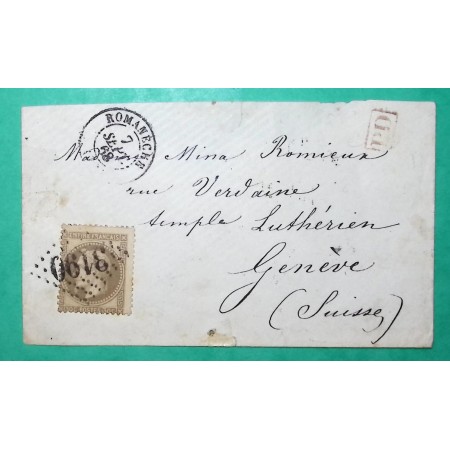 ROMANÈCHE
7
SEPT
68
P.D.
Mina Romieux
rue Verdaine
temple Luthérien
Genève
(Suisse)
3190